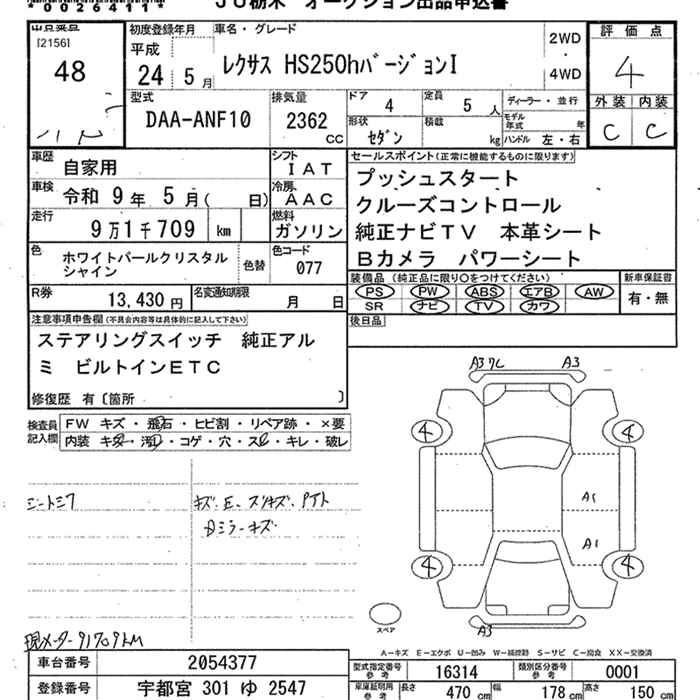 *0026411*
JU栃木 オークション出品申込書
出品番号
[2156]
48
初度登録年月
平成
24 年 5 月
車名・グレード
レクサス HS250hバージョンI
2WD
・
4WD
評価点
4
外装 内装
C C
型式
DAA-ANF10
排気量
2362 cc
ドア
4
定員
5 人
形状
セダン
積載
kg
ディーラー・並行
モデル年式 年
ハンドル 左・右
車歴
自家用
シフト
IAT
車検
令和 9年 5月( 日)
冷房
AAC
走行
9万1千709 km
燃料
ガソリン
色
ホワイトパールクリスタル
シャイン
色替
色コード
077
R券
13,430 円
名変通知期限
月 日
セールスポイント(正常に機能するものに限ります)
プッシュスタート
クルーズコントロール
純正ナビTV 本革シート
Bカメラ パワーシート
装備品 (純正品に限り○をつけてください)
PS PW ABS エアB AW
SR ナビ TV カワ
新車保証書
有・無
後日品
注意事項申告欄(不具合内容等は具体的に記入して下さい)
ステアリングスイッチ 純正アル
ミ ビルトインETC
修復歴 有〔箇所 〕
検査員
記入欄
FW キズ・飛石・ヒビ割・リペア跡・×要
内装 キズ・汚れ・コゲ・穴・スレ・キレ・破レ
A3 A3
4 4
A1
A1
4 4
A3
スペア
現メーター91709KM
A-キズ E-エクボ U-凹み W-補修跡 S-サビ C-腐食 XX-交換済
車台番号
2054377
登録番号
宇都宮 301 ゆ 2547
型式指定番号
参考
16314
類別区分番号
参考
0001
車庫証明用
参考
長さ
470 cm
幅
178 cm
高さ
150 cm